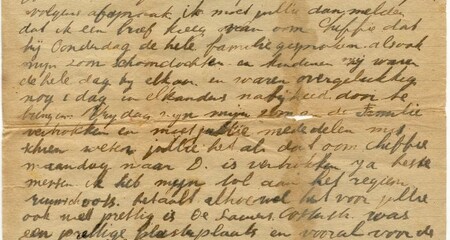 volgens afspraak ik moet jullie dan melden
dat ik een brief kreeg van oom Cheffie dat
hij Donderdag de hele familie gesproken alsook
mijn zoon schoondochter en kinderen zij waren
de hele dag bij elkaar en waren overgelukkig
nog 1 dag in elkanders nabijheid door te
brengen Vrijdag zijn mijn en de Familie
vertrokken en moet jullie mededelen mis
schien weten jullie het al dat oom Cheffie
maandag naar D. is vertrokken ja beste
mensen ik heb mijn tol aan het regiem
ruimschoots betaalt alhoewel het voor jullie
ook niet prettig is De was
een prettige plaats en vooral voor de